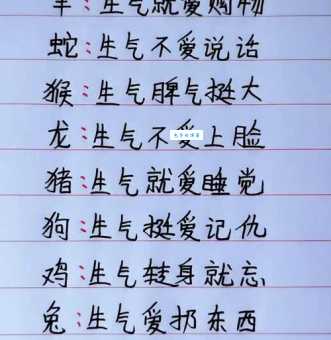 羊:生气就爱购物
蛇:生气不爱说话
猴:生气脾气挺大
龙:生气不爱上脸
猪:生气就爱睡觉
狗:生气挺爱记仇
鸡:生气转身就忘
兔:生气爱扔东西